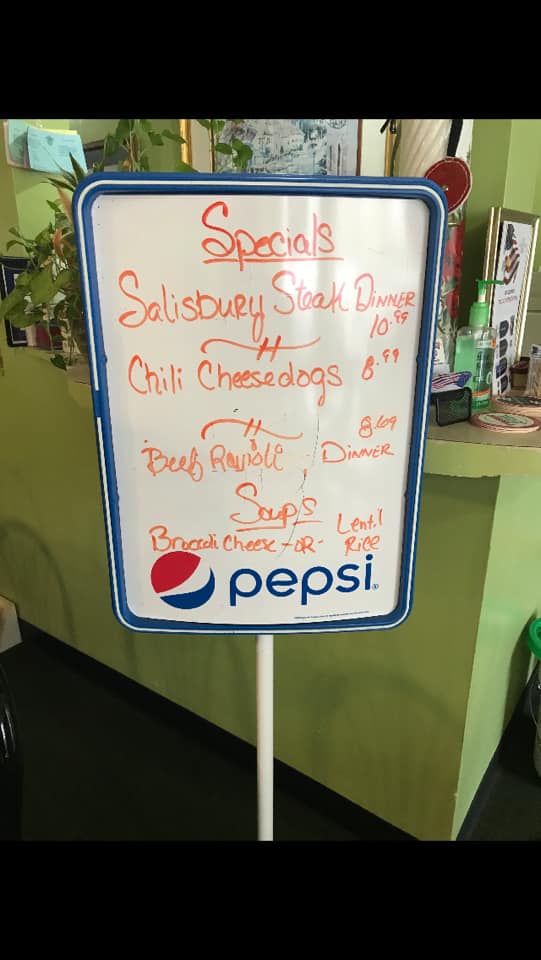 Specials
Salisbury Steak DINNER
10.99
Chili Cheesedogs 8.99
8.69
Beef Ravioli - DINNER
Soups
Broccoli Cheese -OR- Lentil
Rice
pepsi